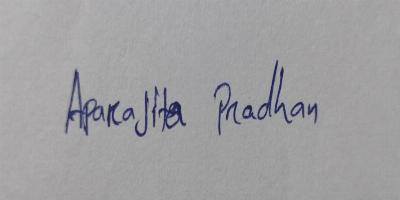 Aparajita Pradhan